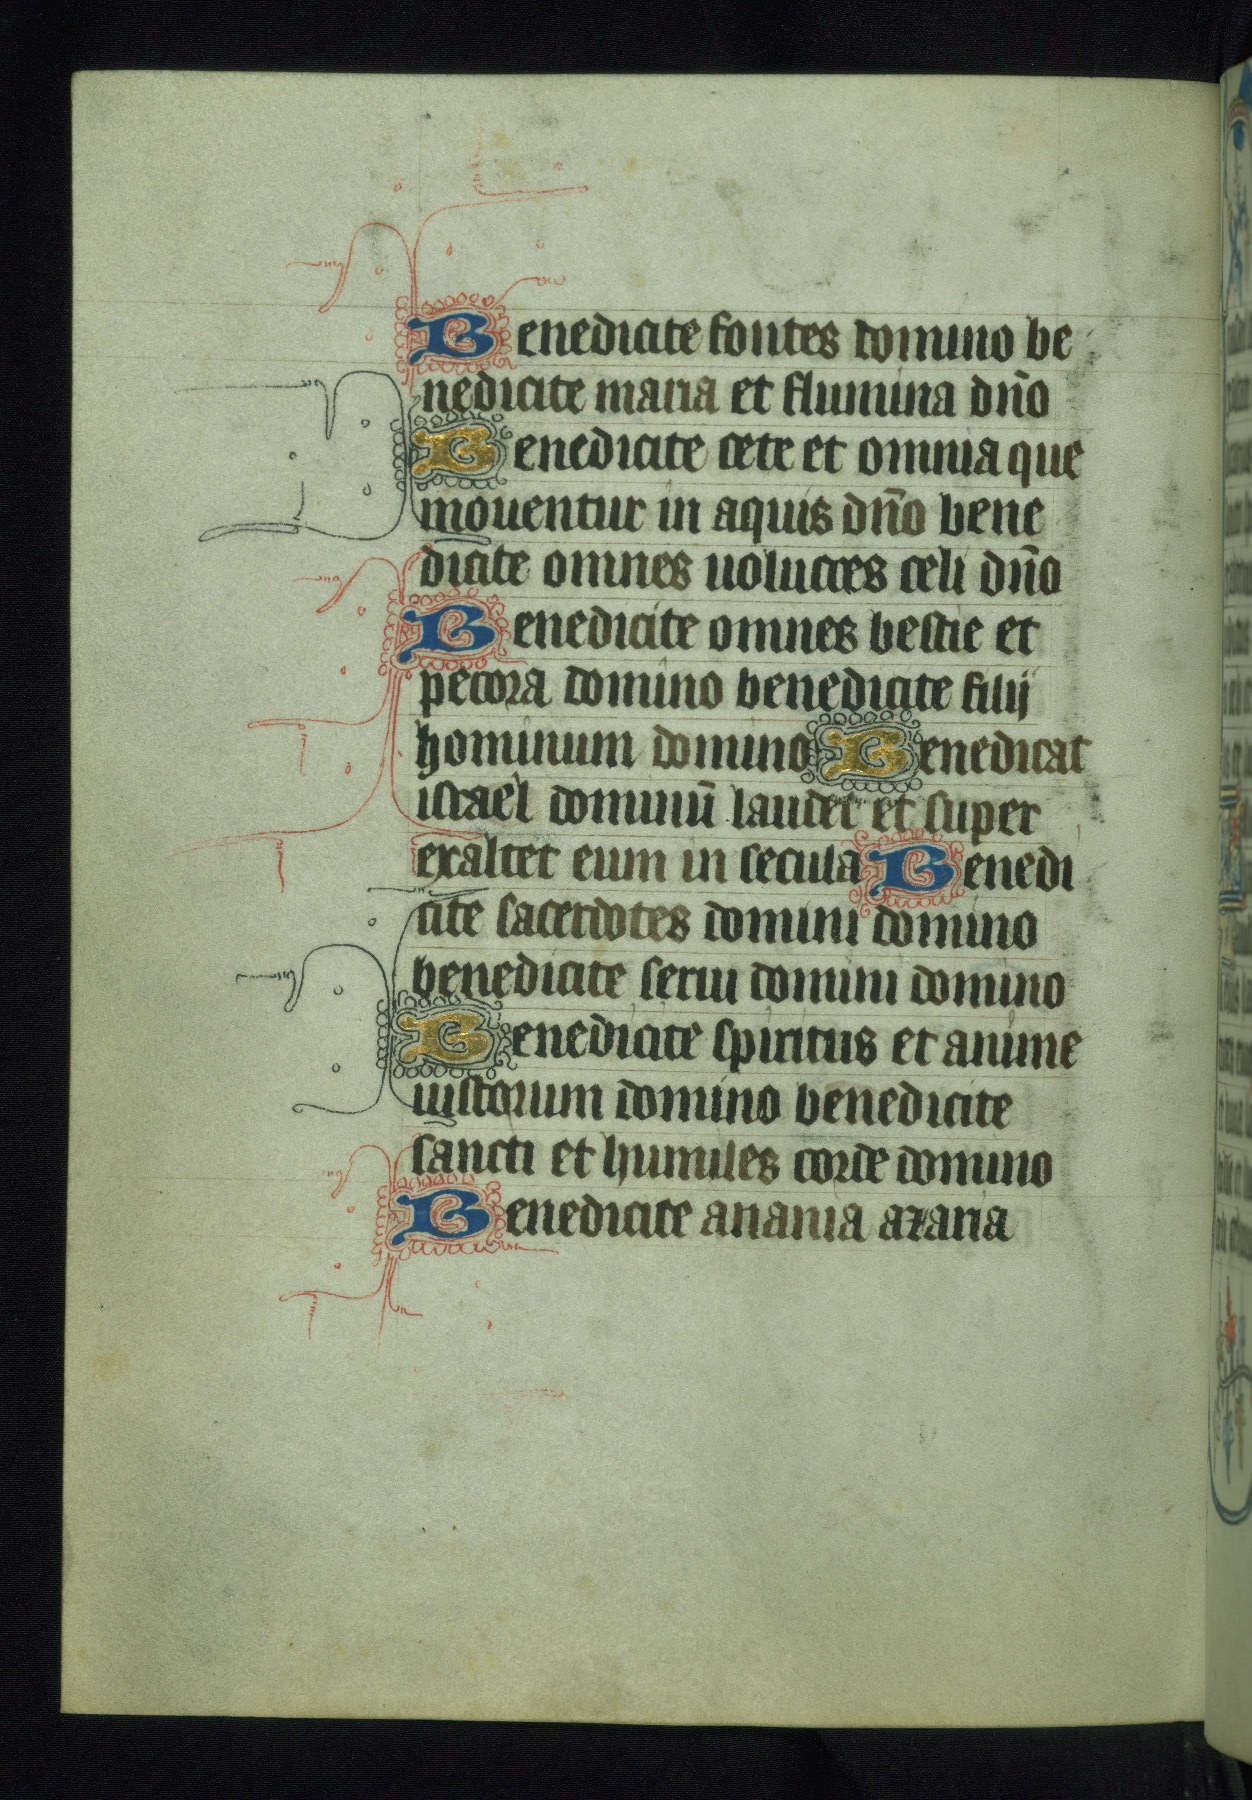 Benedicite fontes domino be
nedicite maria et flumina dño
Benedicite cete et omnia que
mouentur in aquis dño bene
dicite omnes uolucres celi dño
Benedicite omnes bestie et
pecora domino benedicite filij
hominum domino Benedicat
israel dominū laudet et super
exaltet eum in secula Benedi
cite sacerdotes domini domino
benedicite serui domini domino
Benedicite spiritus et anime
iustorum domino benedicite
sancti et humiles corde domino
Benedicite anania azaria